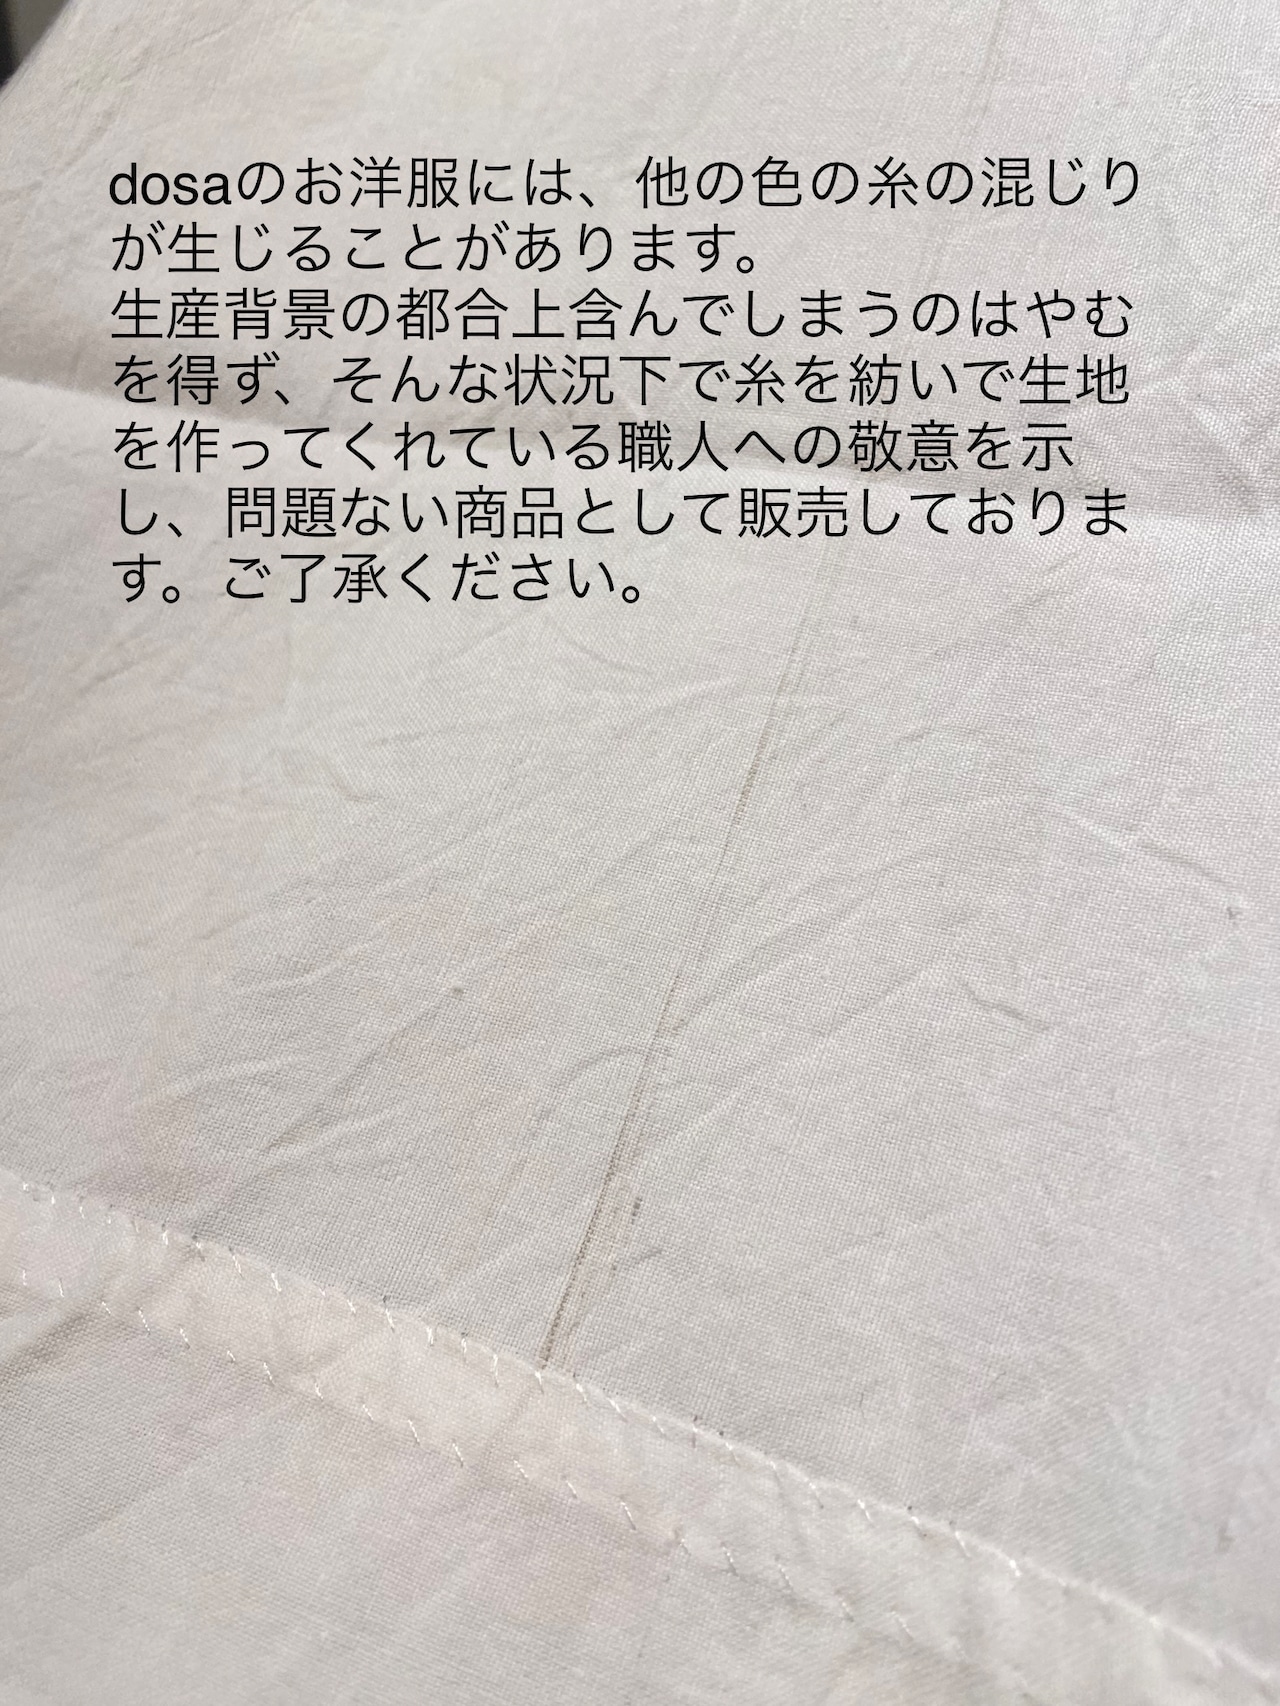 dosaのお洋服には、他の色の糸の混じり
が生じることがあります。
生産背景の都合上含んでしまうのはやむ
を得ず、そんな状況下で糸を紡いで生地
を作ってくれている職人への敬意を示
し、問題ない商品として販売しておりま
す。ご了承ください。